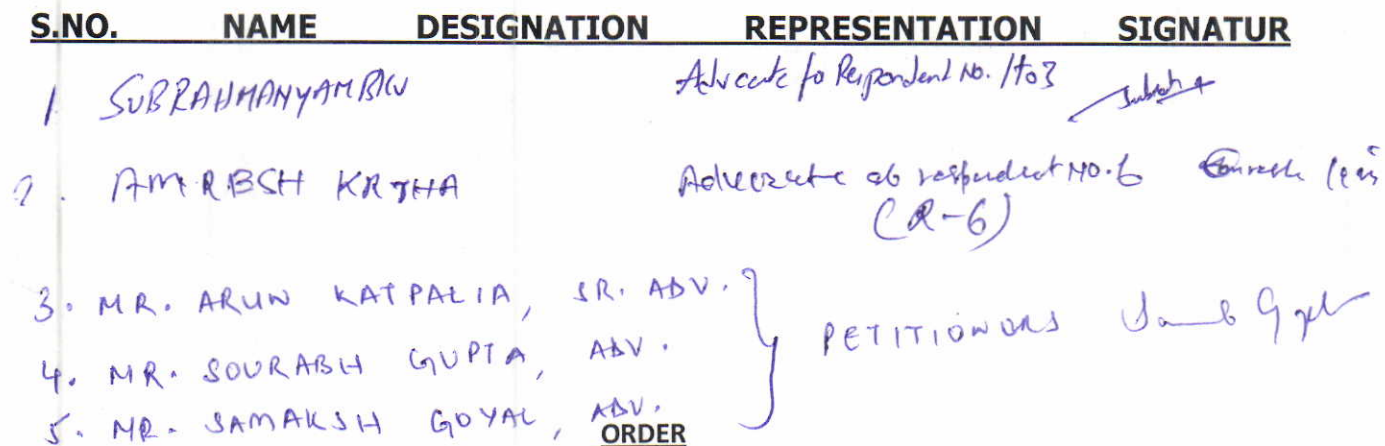 S.NO. NAME DESIGNATION REPRESENTATION SIGNATUR
1 Advocate fo Respondent No. 1to3
2. AMRBSH KR JHA Advocate ob respondent NO.6
(R-6)
3. MR. ARUN KATPALIA, SR. ADV.
4. MR. SOURABH GUPTA, ADV. PETITIONERS
5. MR. SAMAKSH GOYAL, ADV.
ORDER